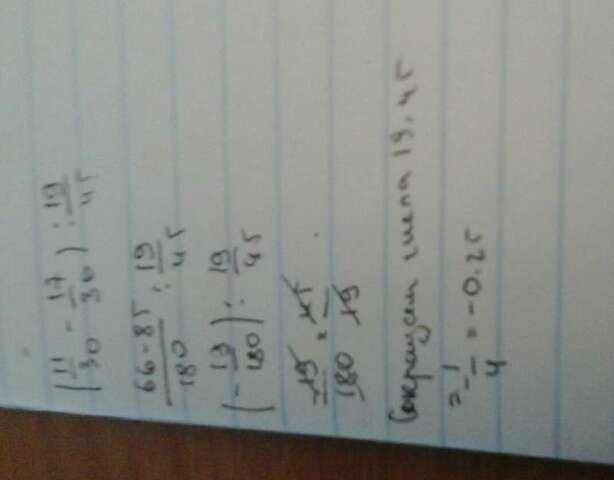 (11/30 - 17/36) : 19/45
66-85/180 : 19/45
(- 19/180) : 19/45
-19/180 × 45/19
Сокращаем числа 19, 45
= - 1/4 = -0.25